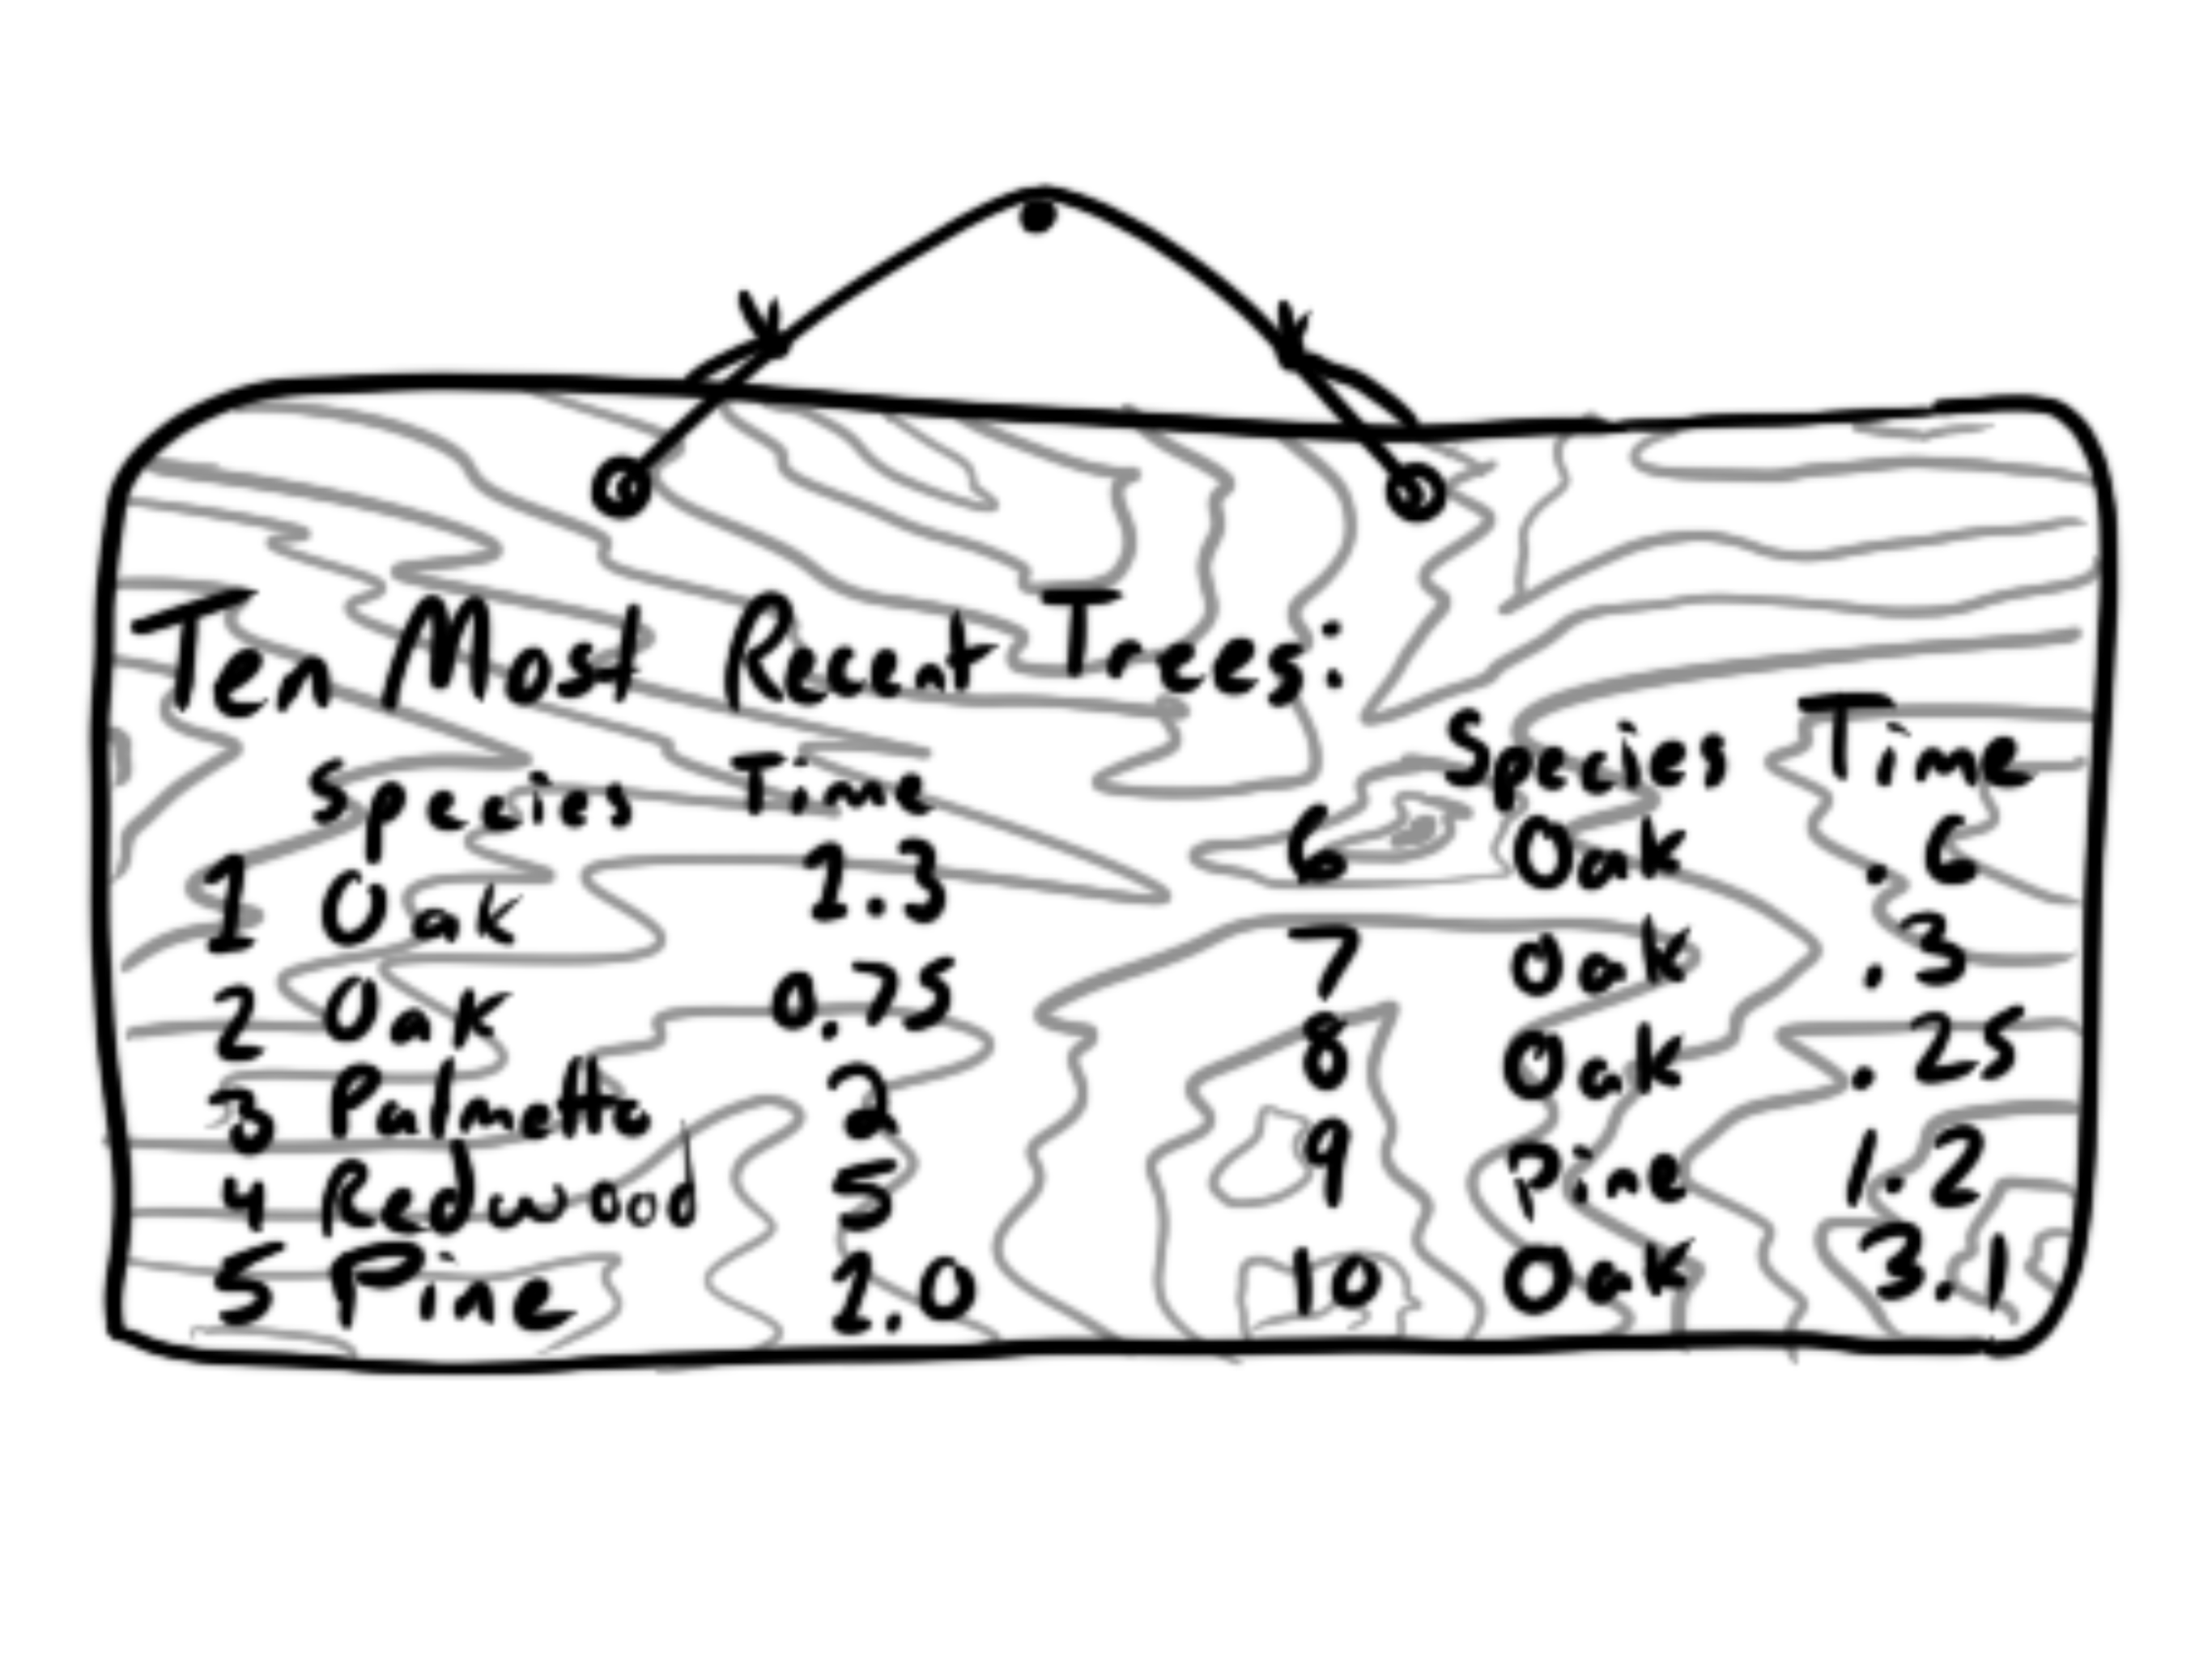 Ten Most Recent Trees:
Species Time
1 Oak 1.3
2 Oak 0.75
3 Palmetto 2
4 Redwood 5
5 Pine 1.0
Species Time
6 Oak .6
7 Oak .3
8 Oak .25
9 Pine 1.2
10 Oak 3.1